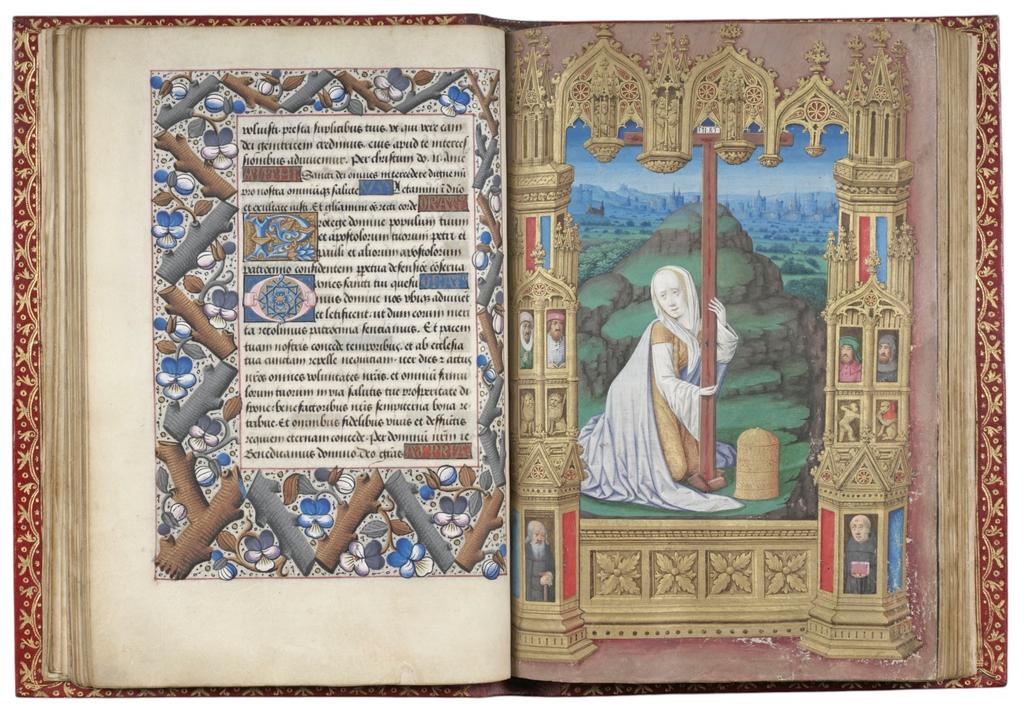 voluisti. presta supplicibus tuis. ut qui vere eam
dei genitricem credimus. eius apud te interces
sionibus adiuvemur. Per christum do. n. Ame
Sancti dei omnes intercedere dignemi
pro nostra omniūq; salute VS letamini ī dno
et exultate iusti. Et gloriamini oēs recti corde ORATI
Protege domine populum tuum
et apostolorum tuorum petri et
pauli et aliorum apostolorum
patrocinio confidentem ppetua defensione cōserua
Omnes sancti tui quesu
mus domine nos vbiq; adiuuēt
et letificent. ut dum eorum meri
ta recolimus patrocinia sentiamus. Et pacem
tuam nostris concede temporibus. et ab ecclesia
tua cunctam repelle nequitiam. iter dies et actus
nrōs omnes voluntates nrās. et omniū famu
lorum tuorum in via salutis tue prosperitate di
spone. benefactoribus nrīs sempiterna bona re
tribue. Et omnibus fidelibus viuis et deffūctis
requiem eternam concede. Per dominū nrm ie
Benedicamus domino. Deo grās AD PRIA
INRI